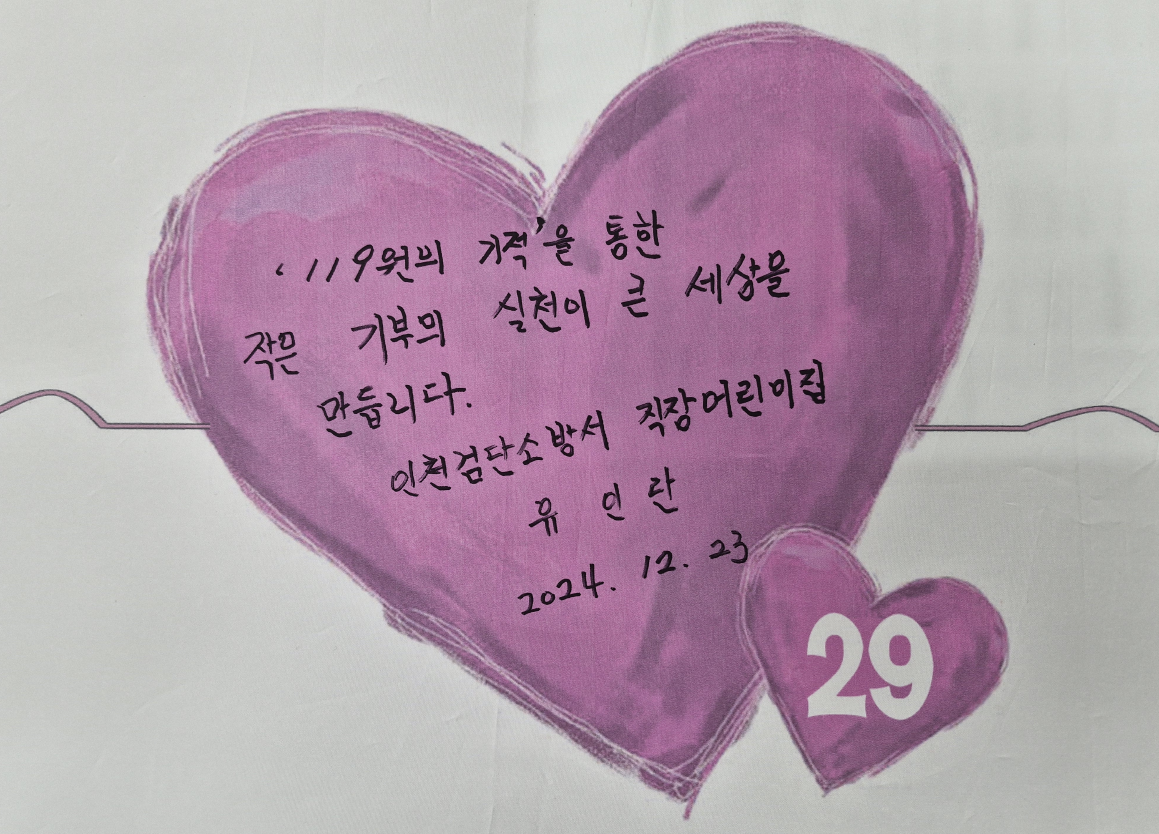 '119원의 기적'을 통한
작은 기부의 실천이 큰 세상을
만듭니다.
인천검단소방서 직장어린이집
유 인 란
2024. 12. 23
29